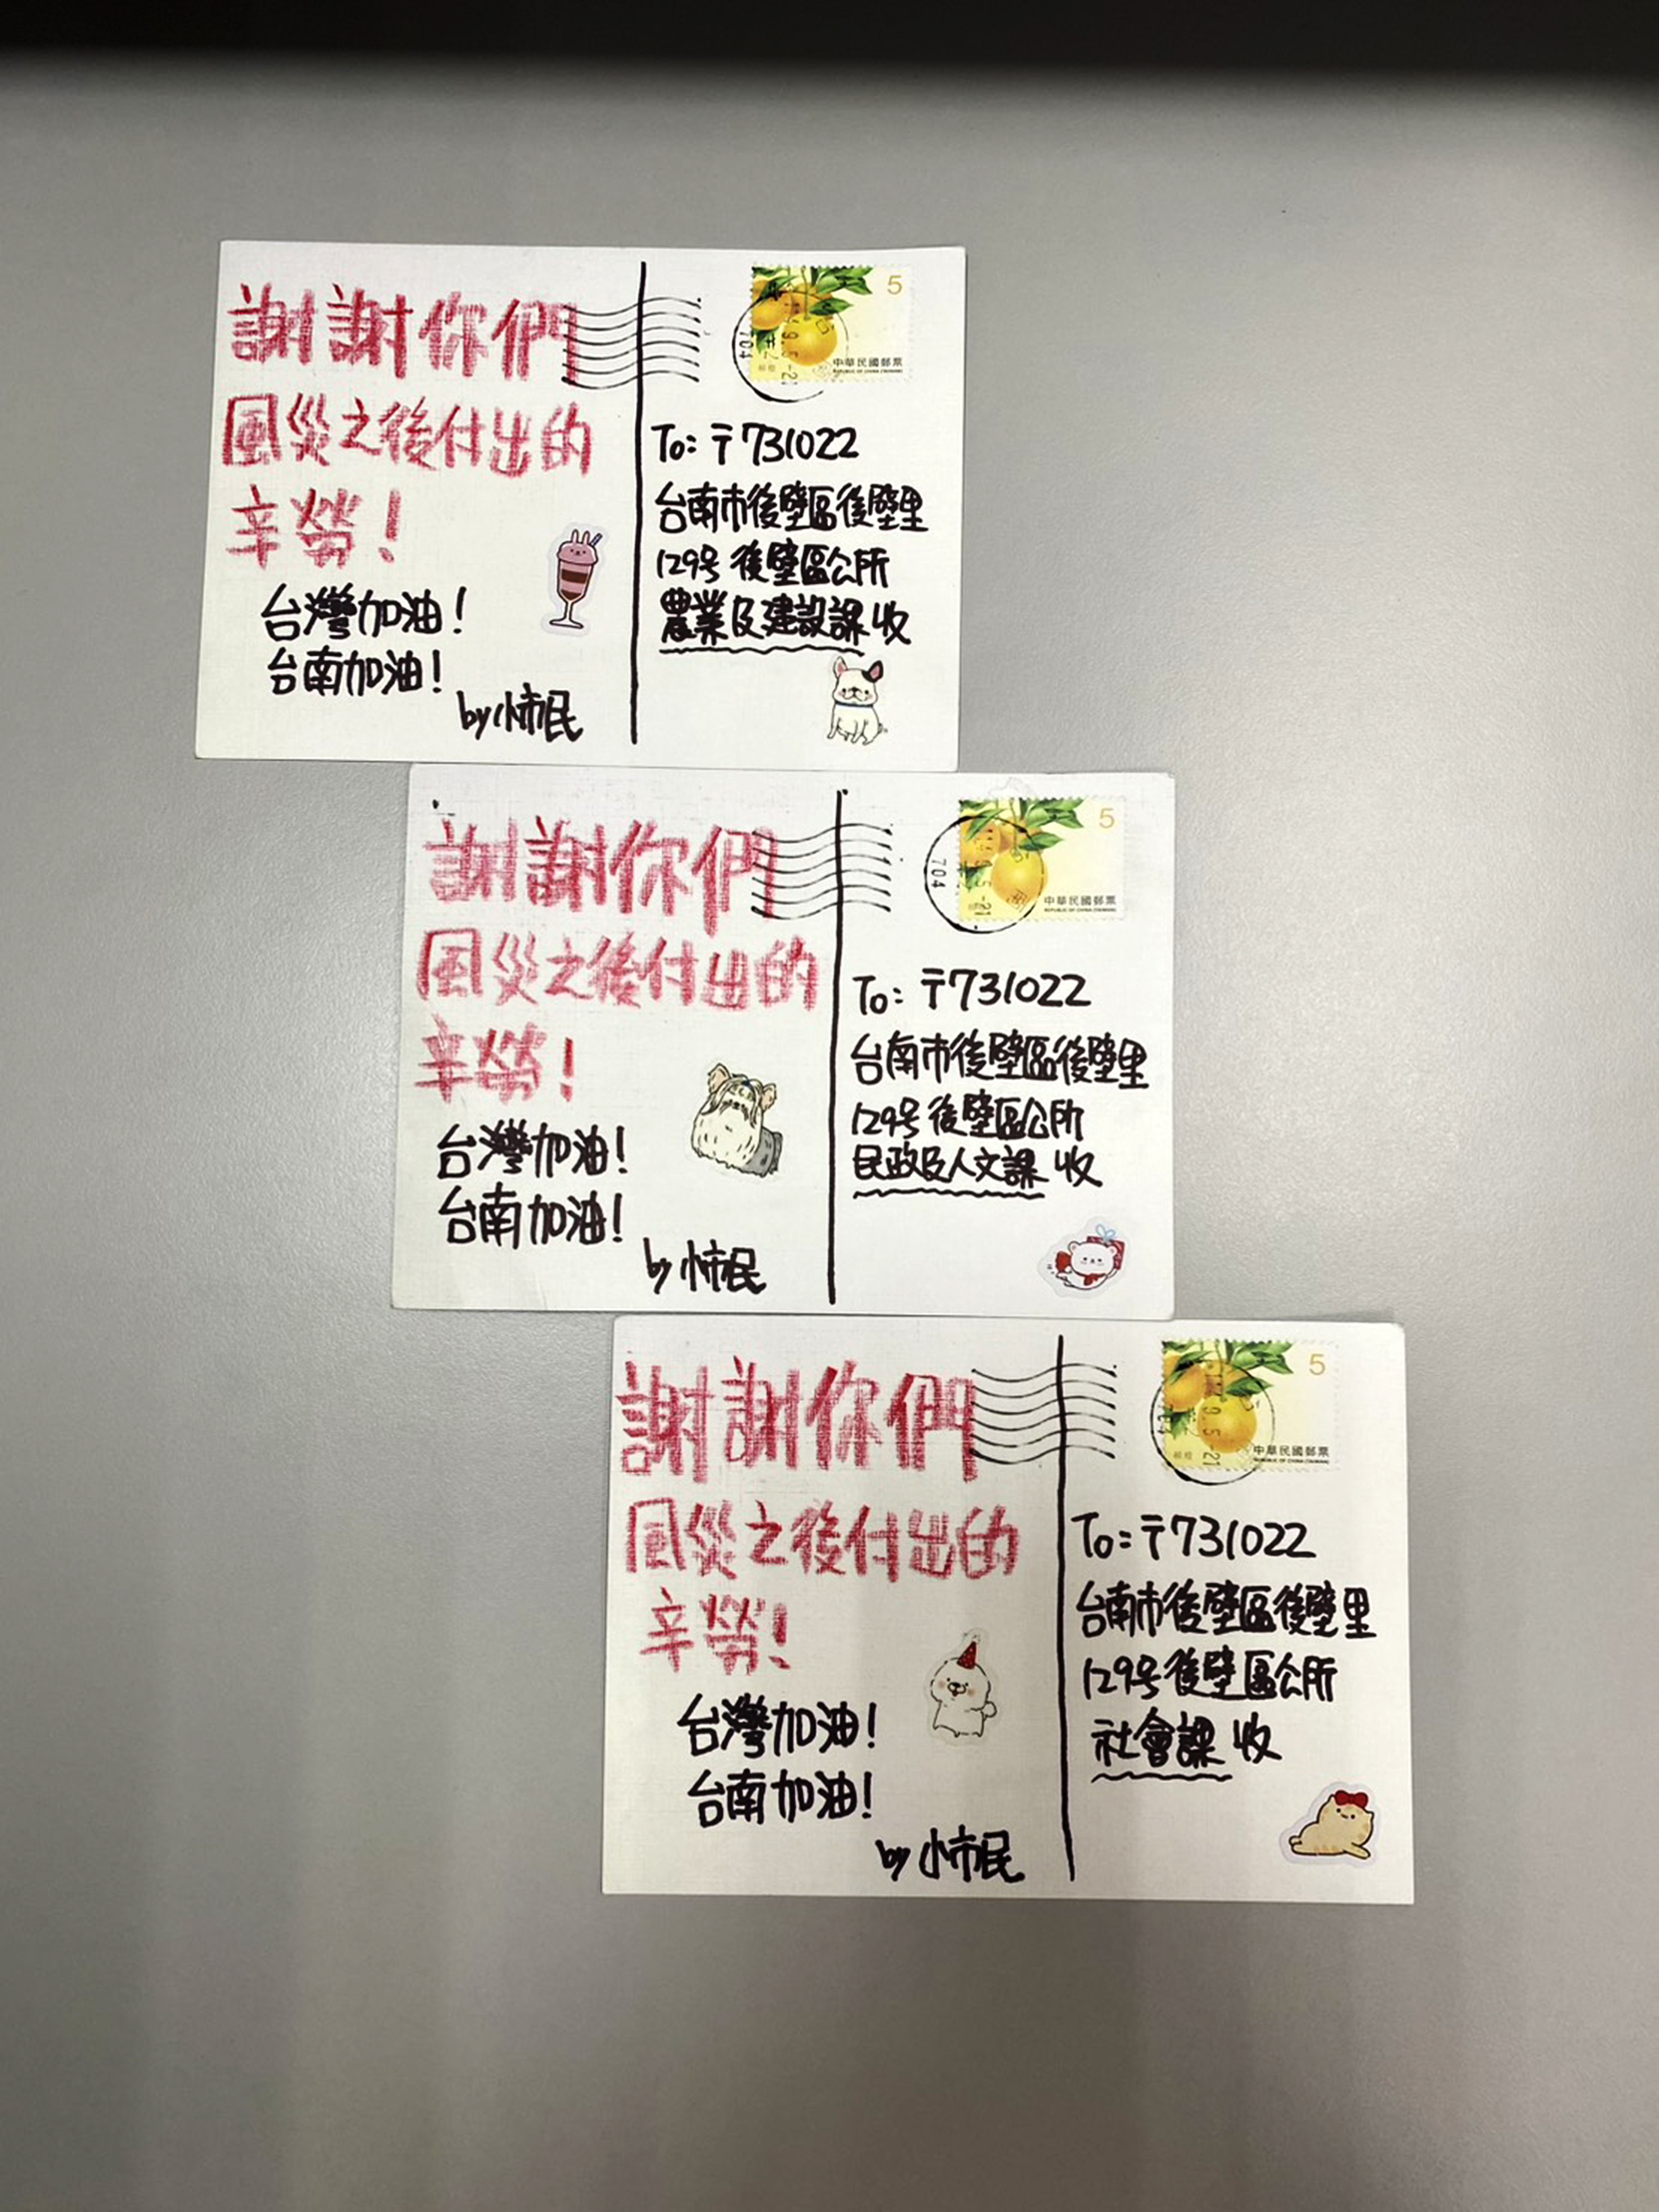 謝謝你們
風災之後付出的
辛勞!
台灣加油!
台南加油!
by小市民
5
中華民國郵票
REPUBLIC OF CHINA (TAIWAN)
704
To: 〒731022
台南市後壁區後壁里
129号 後壁區公所
農業及建設課 收
謝謝你們
風災之後付出的
辛勞!
台灣加油!
台南加油!
by 小市民
5
中華民國郵票
REPUBLIC OF CHINA (TAIWAN)
704
To: 〒731022
台南市後壁區後壁里
129号 後壁區公所
民政及人文課 收
謝謝你們
風災之後付出的
辛勞!
台灣加油!
台南加油!
by 小市民
5
中華民國郵票
REPUBLIC OF CHINA (TAIWAN)
704
To: 〒731022
台南市後壁區後壁里
129号 後壁區公所
社會課 收